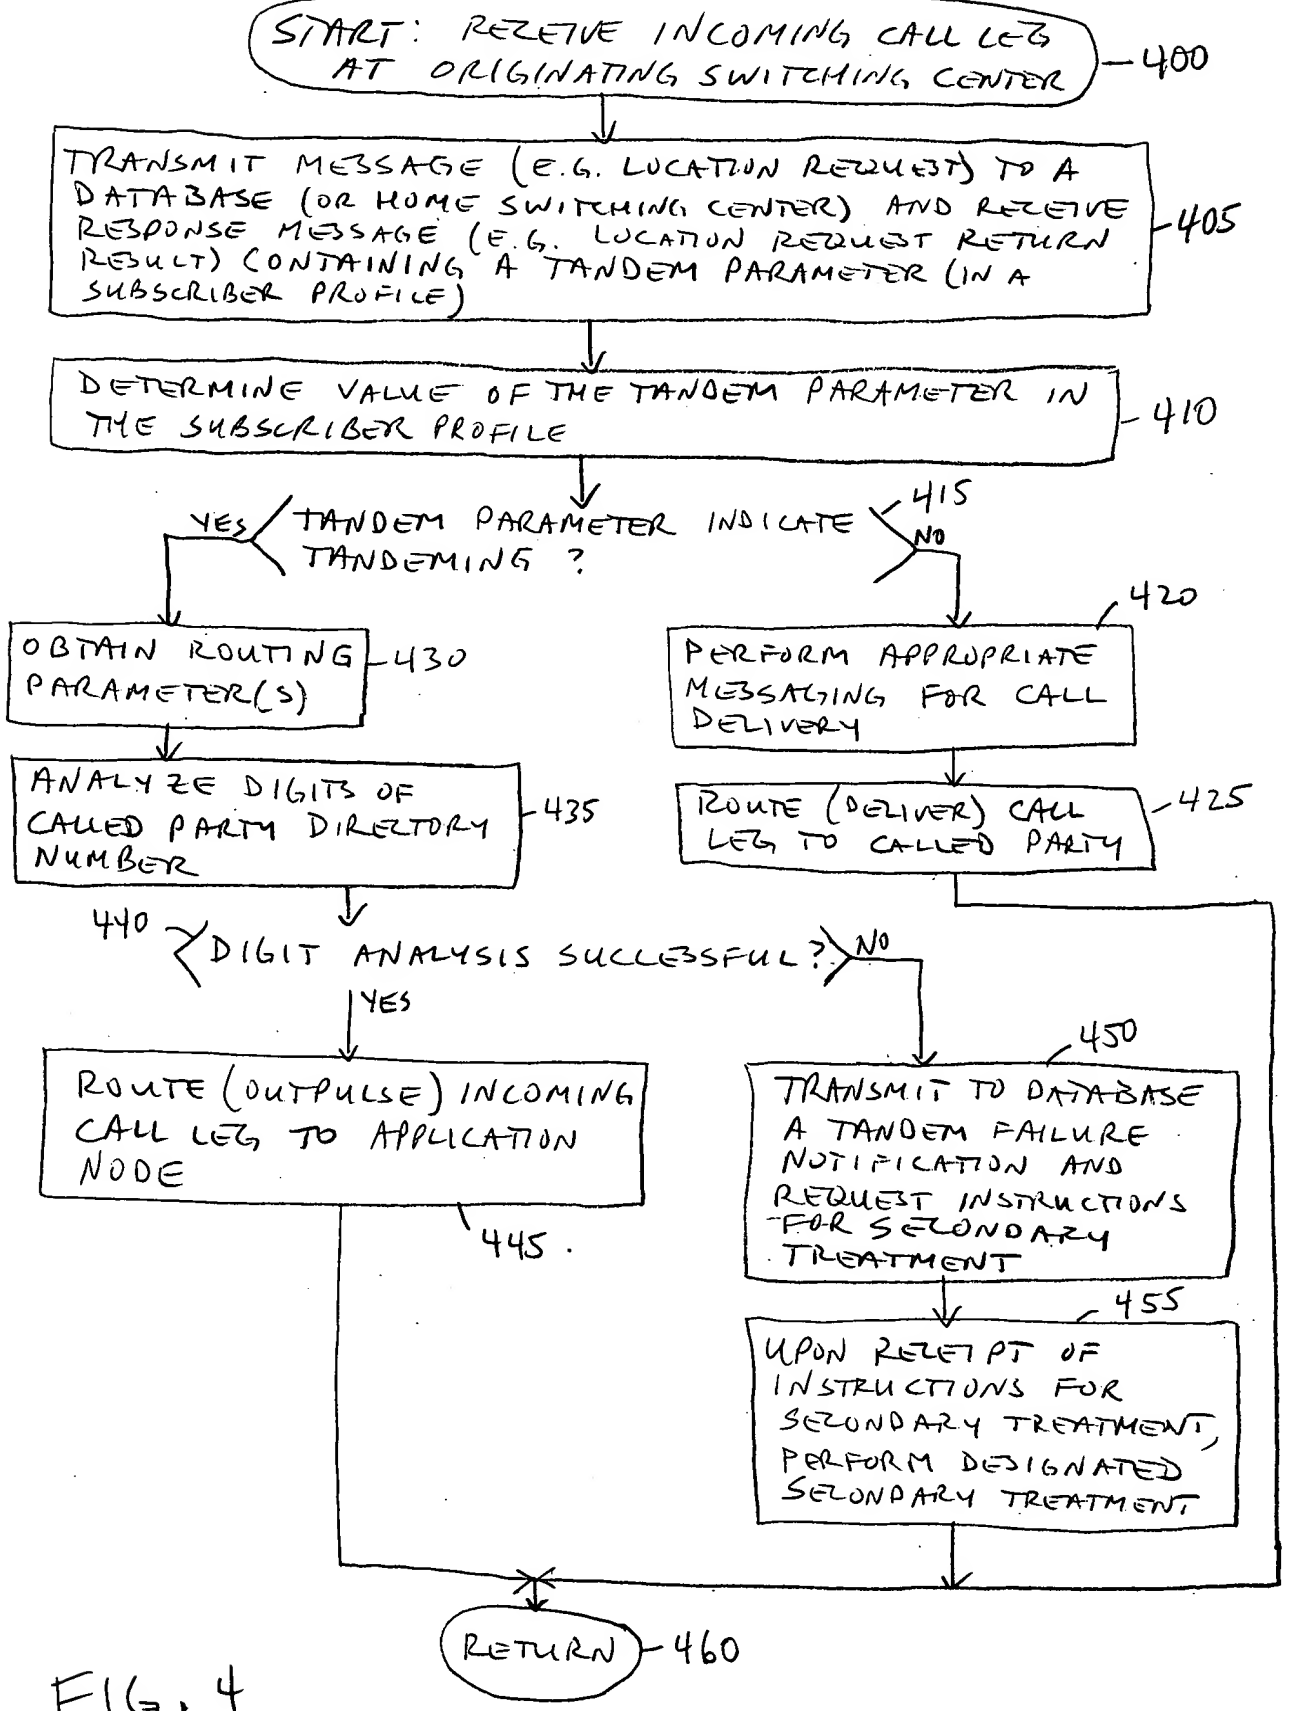 START: RECEIVE INCOMING CALL LEG
AT ORIGINATING SWITCHING CENTER
400
TRANSMIT MESSAGE (E.G. LOCATION REQUEST) TO A
DATABASE (OR HOME SWITCHING CENTER) AND RECEIVE
RESPONSE MESSAGE (E.G. LOCATION REQUEST RETURN
RESULT) CONTAINING A TANDEM PARAMETER (IN A
SUBSCRIBER PROFILE)
405
DETERMINE VALUE OF THE TANDEM PARAMETER IN
THE SUBSCRIBER PROFILE
410
415
YES
TANDEM PARAMETER INDICATE
TANDEMING ?
NO
420
OBTAIN ROUTING
PARAMETER(S)
430
PERFORM APPROPRIATE
MESSAGING FOR CALL
DELIVERY
ANALYZE DIGITS OF
CALLED PARTY DIRECTORY
NUMBER
435
ROUTE (DELIVER) CALL
LEG TO CALLED PARTY
425
440
DIGIT ANALYSIS SUCCESSFUL?
NO
YES
450
ROUTE (OUTPULSE) INCOMING
CALL LEG TO APPLICATION
NODE
445
TRANSMIT TO DATABASE
A TANDEM FAILURE
NOTIFICATION AND
REQUEST INSTRUCTIONS
FOR SECONDARY
TREATMENT
455
UPON RECEIPT OF
INSTRUCTIONS FOR
SECONDARY TREATMENT,
PERFORM DESIGNATED
SECONDARY TREATMENT
RETURN
460
FIG. 4